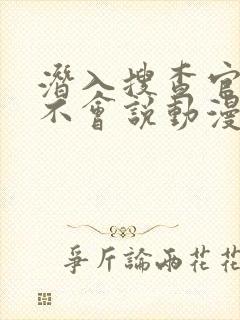 潛入搜查官
不會說動漫
爭斤論兩花花